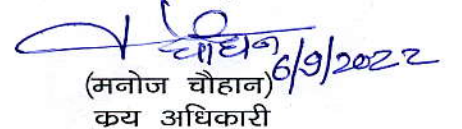 चौहान 6/9/2022
(मनोज चौहान)
क्रय अधिकारी